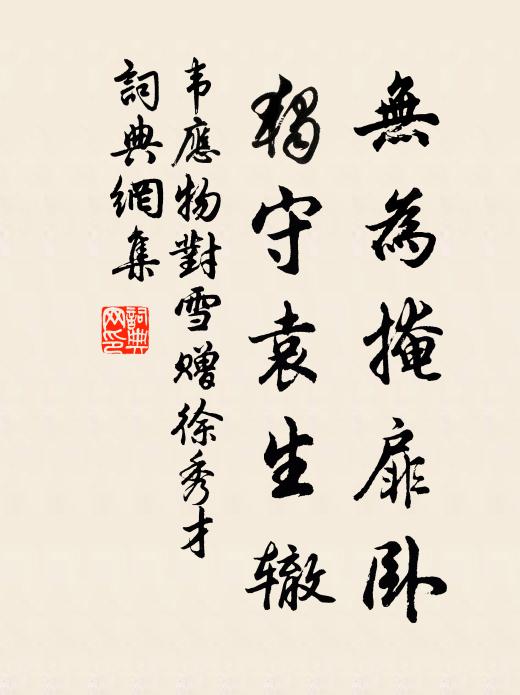 無為掩扉卧
獨守袁生辙
韦應物對雪赠徐秀才
詞典網集
詞典网印